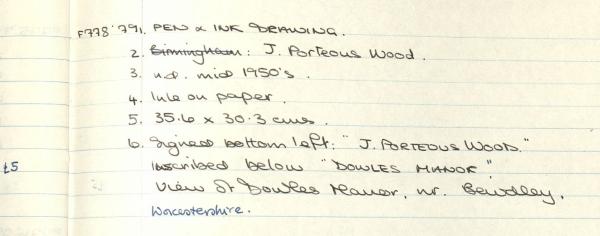 F778'791. PEN & INK DRAWING.
2. Birmingham: J. Porteous Wood.
3. n.d. mid 1950's.
4. Ink on paper.
5. 35.6 x 30.3 cms.
6. Signed bottom left: "J. PORTEOUS WOOD."
£5 inscribed below "DOWLES MANOR".
View of Dowles Manor, nr. Bewdley,
Worcestershire.